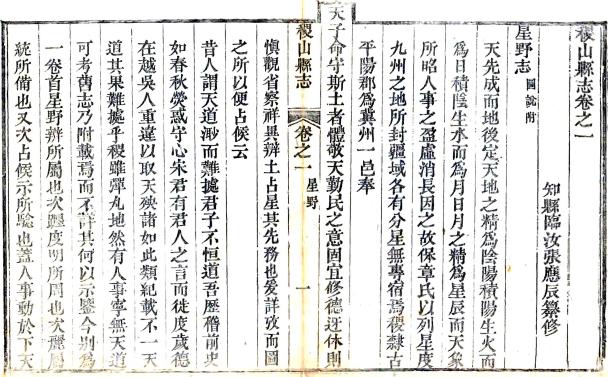 稷山縣志卷之一
知縣臨汝張應辰纂修
星野志 圖說附
天先成而地後定天地之精為陰陽積陽生火而
為日積陰生水而為月日月之精為星辰而天象
所昭人事之盈虛消長因之故保章氏以列星度
九州之地所封疆域各有分星無專宿焉稷隸古
平陽郡為冀州一邑奉
天子命守斯土者體敬天勤民之意固宜修德迓休則
稷山縣志
卷之一
星野
一
慎觀省察祥異辨土占星其先務也爰詳攷而圖
之所以便占候云
昔人謂天道渺而難據君子不恒道吾歷稽前史
如春秋熒惑守心宋君有君人之言而徙度歲德
在越吳人重違以取天殃諸如此類紀載不一天
道其果難據乎稷雖彈丸地然有人事寧無天道
可考舊志乃附載焉而不詳其何以示鑒今别為
一卷首星野辨所屬也次躔度明所周也次䕻屬
統所備也又次占候示所驗也蓋人事動於下天